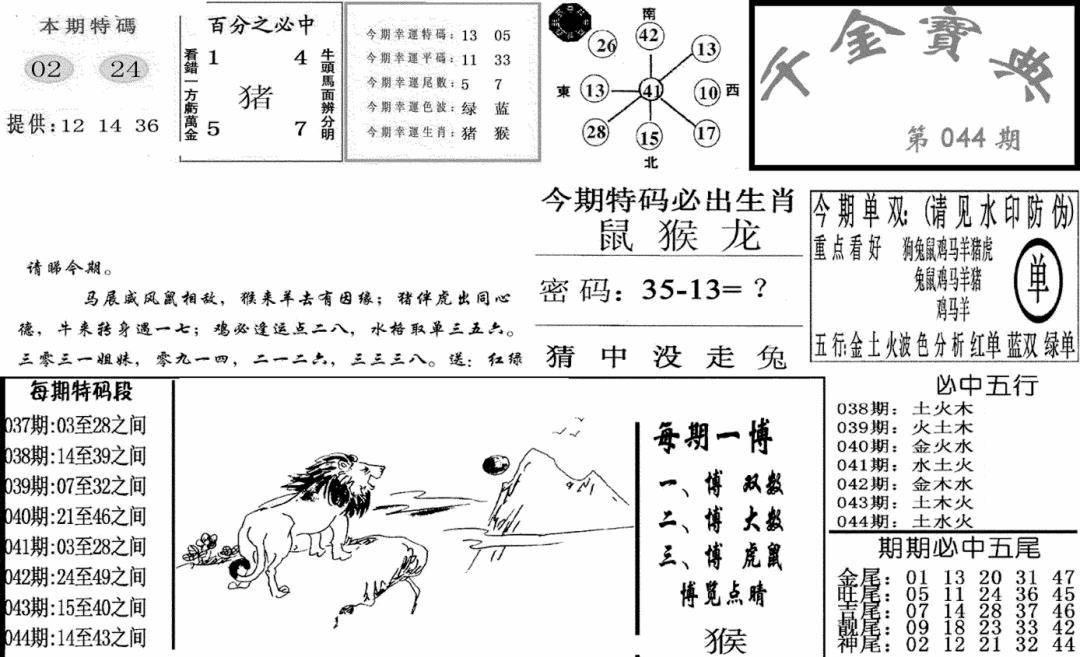 本期特碼
02 24
提供:12 14 36
百分之必中
看錯一方虧萬金
1 4
猪
5 7
牛頭馬面辨分明
今期幸運特碼: 13 05
今期幸運平碼: 11 33
今期幸運尾數: 5 7
今期幸運色波: 绿 蓝
今期幸運生肖: 猪 猴
南
26 42 13
東 13 41 10 西
28 15 17
北
金寶典
第 044 期
请睇今期。
马展威风鼠相敌，猴来羊去有因缘；猪伴虎出同心
德，牛来转身遇一七；鸡必逢运点二八，水格取单三五六。
三零三一姐妹，零九一四，二一二六，三三三八。送：红绿
今期特码必出生肖
鼠 猴 龙
密码：35-13=？
猜中没走兔
今期单双：(请见水印防伪)
重点看好 狗兔鼠鸡马羊猪虎
兔鼠鸡马羊猪
鸡马羊
单
五行:金土火波色分析红单 蓝双 绿单
每期特码段
037期:03至28之间
038期:14至39之间
039期:07至32之间
040期:21至46之间
041期:03至28之间
042期:24至49之间
043期:15至40之间
044期:14至43之间
每期一博
一、博 双数
二、博 大数
三、博 虎鼠
博览点睛
猴
必中五行
038期：土火木
039期：火土木
040期：金火水
041期：水土火
042期：金木水
043期：土木火
044期：土水火
期期必中五尾
金尾：01 13 20 31 47
旺尾：05 11 24 36 45
吉尾：07 14 28 37 46
靓尾：09 18 23 33 42
神尾：02 12 21 32 44